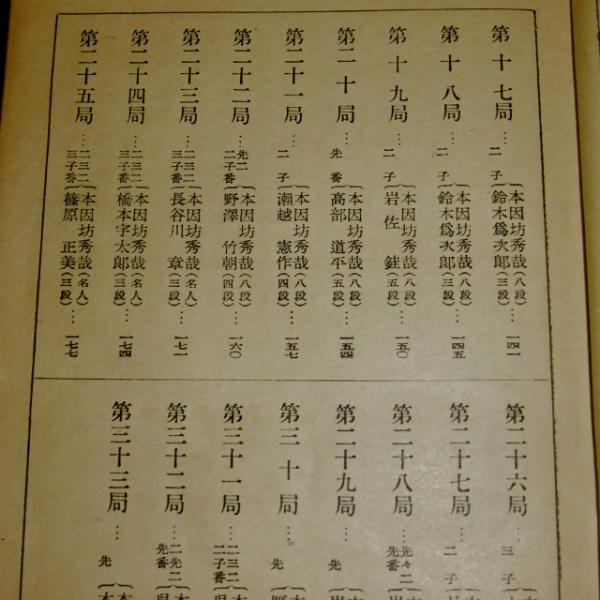 第十七局…二子{本因坊秀哉(八段)鈴木爲次郎(三段)…一四一
第十八局…二子{本因坊秀哉(八段)鈴木爲次郎(三段)…一四五
第十九局…二子{本因坊秀哉(八段)岩佐 銈(五段)…一五〇
第二十局…先番{本因坊秀哉(八段)高部道平(五段)…一五四
第二十一局…二子{本因坊秀哉(八段)瀨越憲作(四段)…一五七
第二十二局…先二二子番{本因坊秀哉(八段)野澤竹朝(四段)…一六〇
第二十三局…二三二三子番{本因坊秀哉(名人)長谷川 章(三段)…一七一
第二十四局…二三二三子番{本因坊秀哉(名人)橋本字太郎(三段)…一七四
第二十五局…二三二三子番{本因坊秀哉(名人)篠原正美(三段)…一七七
第二十六局…三子
第二十七局…二子
第二十八局…先々二先番
第二十九局…先
第三十局…先
第三十一局…二三二二子番
第三十二局…二先二先番
第三十三局…先